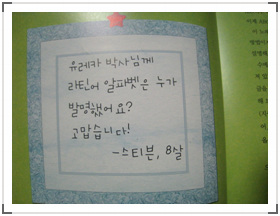 유레카 박사님께
라틴어 알파벳은 누가
발명했어요?
고맙습니다!
-스티븐, 8살